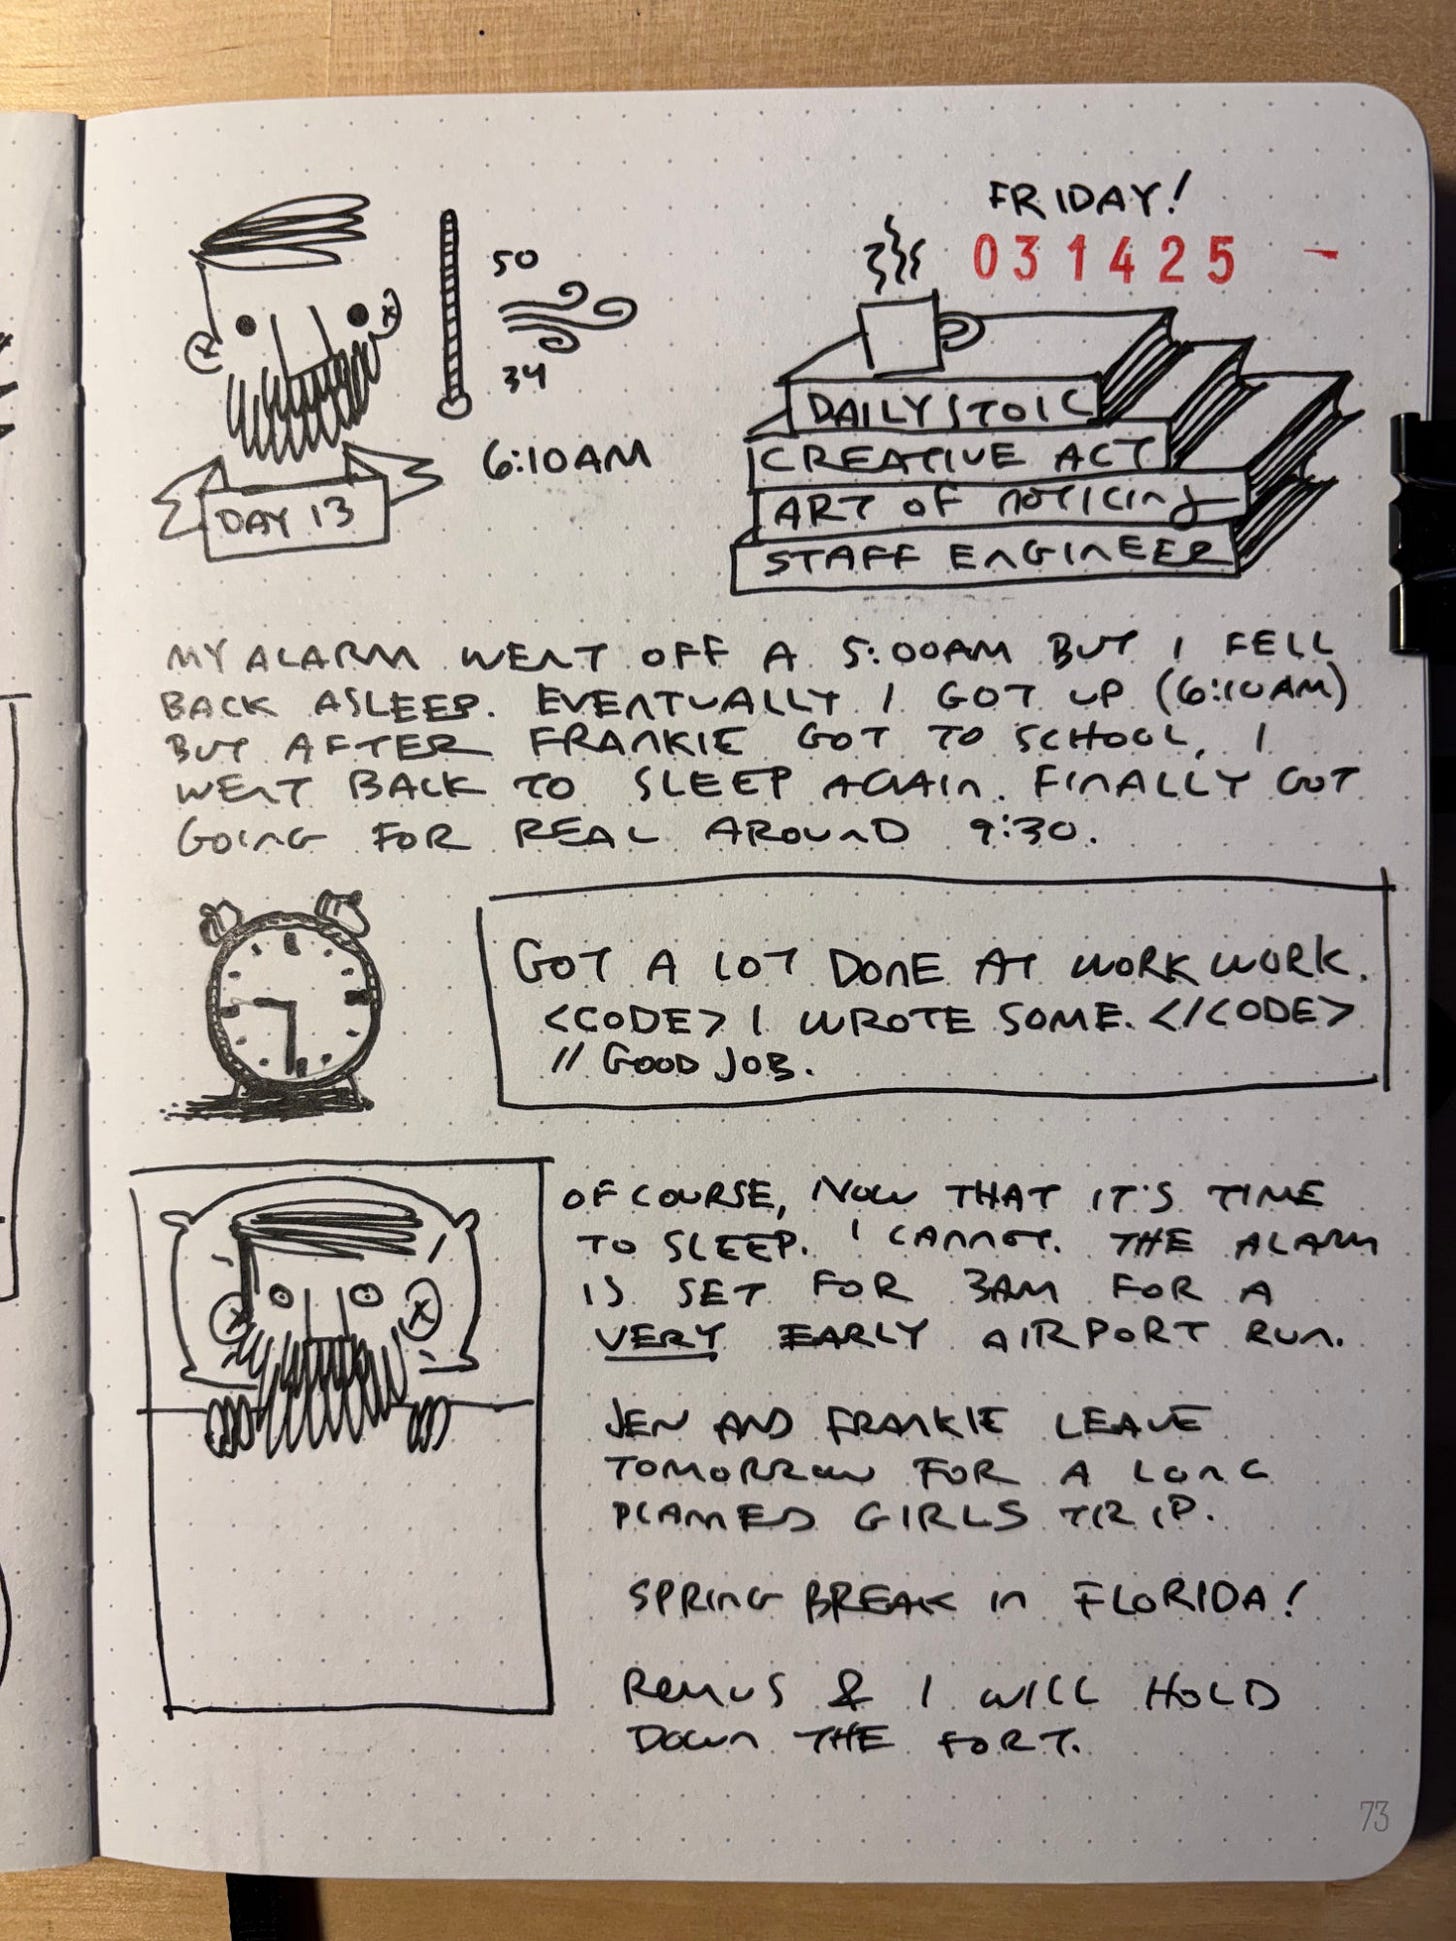 FRIDAY!
031425 -
50
34
6:10AM
DAY 13
DAILY STOIC
CREATIVE ACT
ART OF NOTICING
STAFF ENGINEER
MY ALARM WENT OFF A 5:00AM BUT I FELL
BACK ASLEEP. EVENTUALLY I GOT UP (6:10AM)
BUT AFTER FRANKIE GOT TO SCHOOL, I
WENT BACK TO SLEEP AGAIN. FINALLY GOT
GOING FOR REAL AROUND 9:30.
GOT A LOT DONE AT WORK WORK.
<CODE> I WROTE SOME. </CODE>
// GOOD JOB.
OF COURSE, NOW THAT IT'S TIME
TO SLEEP. I CANNOT. THE ALARM
IS SET FOR 3AM FOR A
VERY EARLY AIRPORT RUN.
JEN AND FRANKIE LEAVE
TOMORROW FOR A LONG
PLANNED GIRLS TRIP.
SPRING BREAK IN FLORIDA!
REMUS & I WILL HOLD
DOWN THE FORT.
73